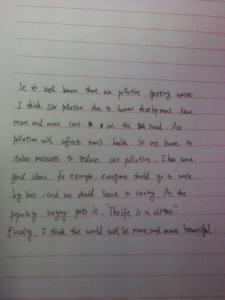 It is well known that air pollution getting worse.
I think air pollution due to human development. Now,
more and more cars on the road. Air
pollution will affects man's health. So we have to
take measures to reduce air pollution. I have some
good ideas. for example, everyone should go to work
by bus, and we should learn to saving. As the
popular saying puts it, "Thrift is a virtue."
Finally, I think the world will be more and more beautiful.